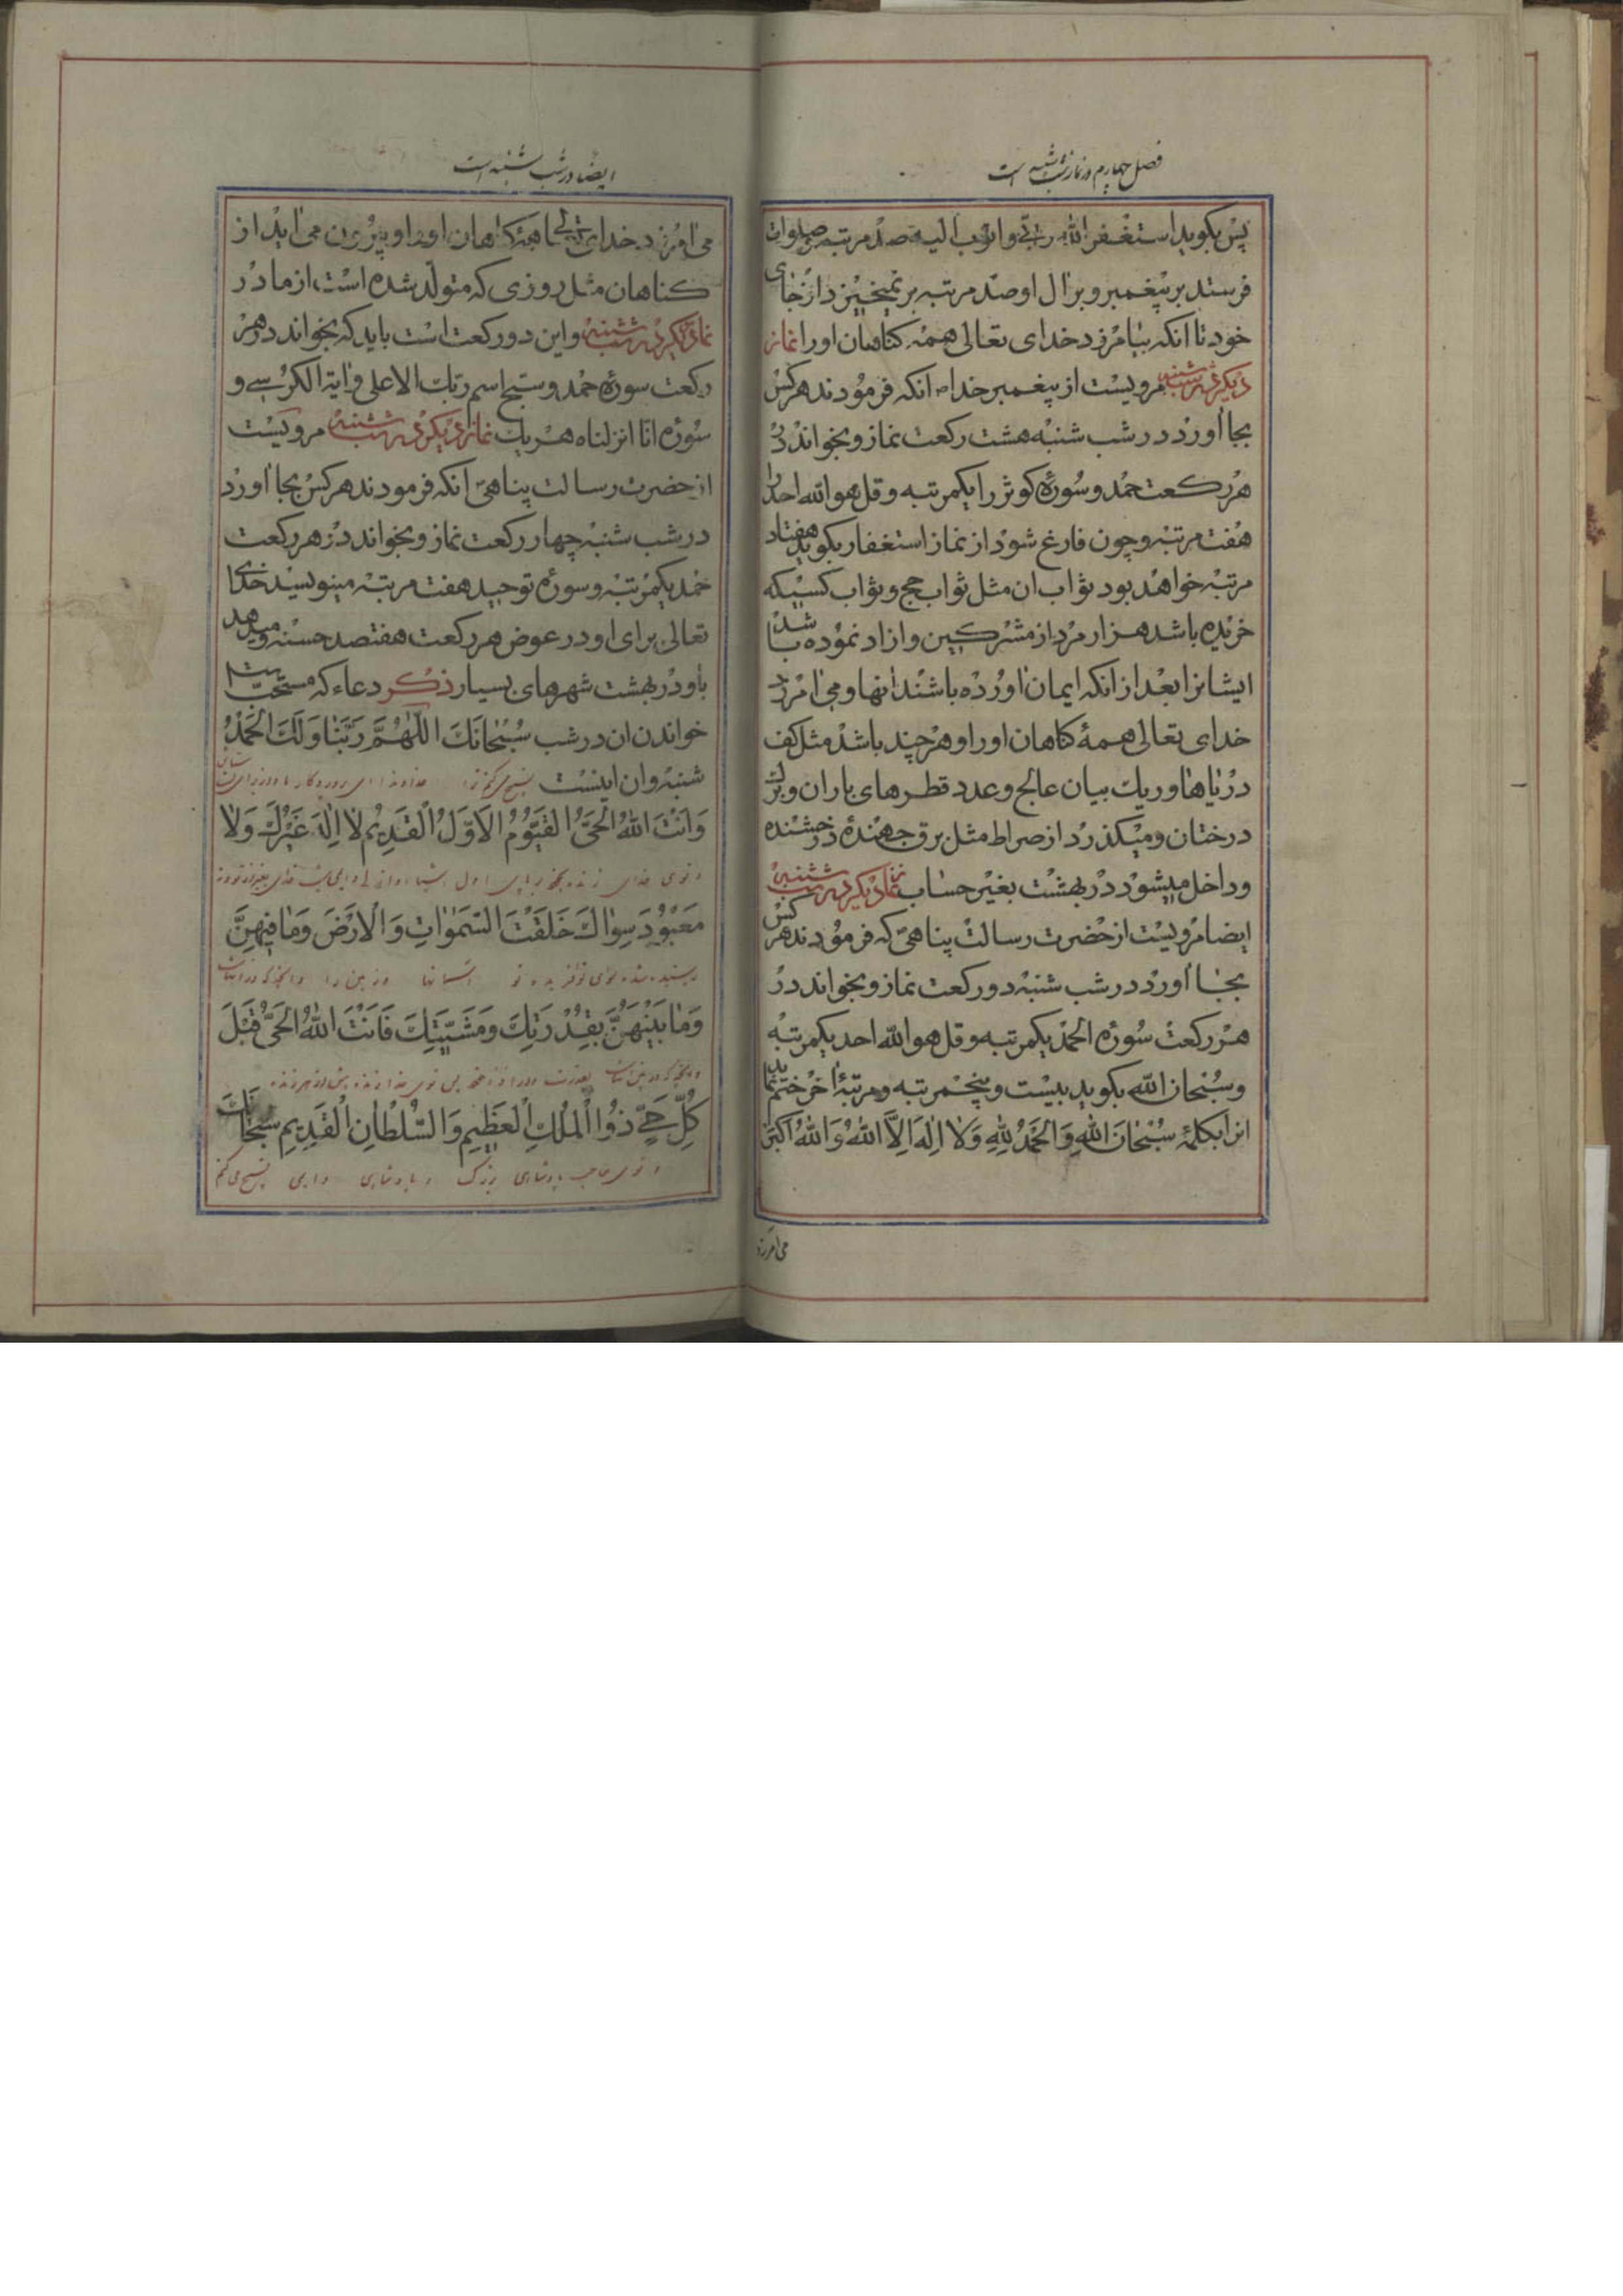 فصل چهارم در نماز شب شنبه است
پس بکوید استغفر الله ربی واتوب الیه صد مرتبه صلوات
فرستد بر پیغمبر و بر ال او صد مرتبه برنمیخیزد از جای
خود تا انکه بیامرزد خدای تعالی همه کناهان او را نماز
دیکر در شب شنبه مرویست از پیغمبر خدا ص انکه فرمودند هر کس
بجا اورد در شب شنبه هشت رکعت نماز و بخواند در
هر رکعت حمد و سوره کوثر را یکمرتبه و قل هو الله احد را
هفت مرتبه و چون فارغ شود از نماز استغفار بکوید هفتاد
مرتبه خواهد بود ثواب ان مثل ثواب حج و ثواب کسیکه
خریده باشد هزار مرد از مشرکین و ازاد نموده باشد
ایشانرا بعد از انکه ایمان اورده باشند انها و می امرزد
خدای تعالی همهٔ کناهان او را و هر چند باشد مثل کف
دریاها و ریک بیان عالج و عدد قطرهای باران و برک
درختان و میکذرد از صراط مثل برق جهندهٔ درخشنده
و داخل میشود در بهشت بغیر حساب نماز دیکر در شب شنبه
ایضا مرویست از حضرت رسالت پناهی که فرمودند هر کس
بجا اورد در شب شنبه دو رکعت نماز و بخواند در
هر رکعت سوره الحمد یکمرتبه و قل هو الله احد یکمرتبه
و سبحان الله بکوید بیست و پنجمرتبه و مرتبهٔ اخر ختم نماید
انرا بکلمهٔ سُبْحانَ اللهِ وَالْحَمْدُ لِلهِ وَلا اِلهَ اِلاَّ اللهُ وَاللهُ اَکْبَرُ
می امرزد
ایضا در شب شنبه است
می امرزد خدای تعالی همه کناهان او را و بیرون می اید از
کناهان مثل روزی که متولد شده است از مادر
نماز دیکر در شب شنبه و این دو رکعت است باید که بخواند در هر
رکعت سوره حمد و سبح اسم ربک الاعلی و ایة الکرسی و
سوره انا انزلناه هر یک نماز دیکر در شب شنبه مرویست
از حضرت رسالت پناهی انکه فرمودند هر کس بجا اورد
در شب شنبه چهار رکعت نماز و بخواند در هر رکعت
حمد یکمرتبه و سوره توحید هفت مرتبه مینویسد خدای
تعالی برای او در عوض هر رکعت هفتصد حسنه و میدهد
باو در بهشت شهرهای بسیار ذکر دعاء که مستحب است
خواندن ان در شب سُبْحانَکَ اللّهُمَّ رَبَّنا وَلَکَ الْحَمْدُ
شنبه و ان اینست تسبیح می کنم ترا خداوندا ای پروردکار ما و از برای تست ستایش
وَاَنْتَ اللهُ الْحَیُّ الْقَیُّومُ الْاَوَّلُ الْقَدِیمُ لا اِلهَ غَیْرُکَ وَلا
و توی خدای زنده
مَعْبُودَ سِواکَ خَلَقْتَ السَّمواتِ وَالْاَرْضَ وَما فِیهِنَّ
اسمانها و زمین را
وَما بَیْنَهُنَّ بِقُدْرَتِکَ وَمَشِیَّتِکَ فَاَنْتَ اللهُ الْحَیُّ قَبْلَ
کُلِّ حَیٍّ ذُوا الْمُلْکِ الْعَظِیمِ وَالسُّلْطانِ الْقَدِیمِ سُبْحانَکَ
و توی صاحب پادشاهی بزرک و پادشاهی دایمی تسبیح می کنم